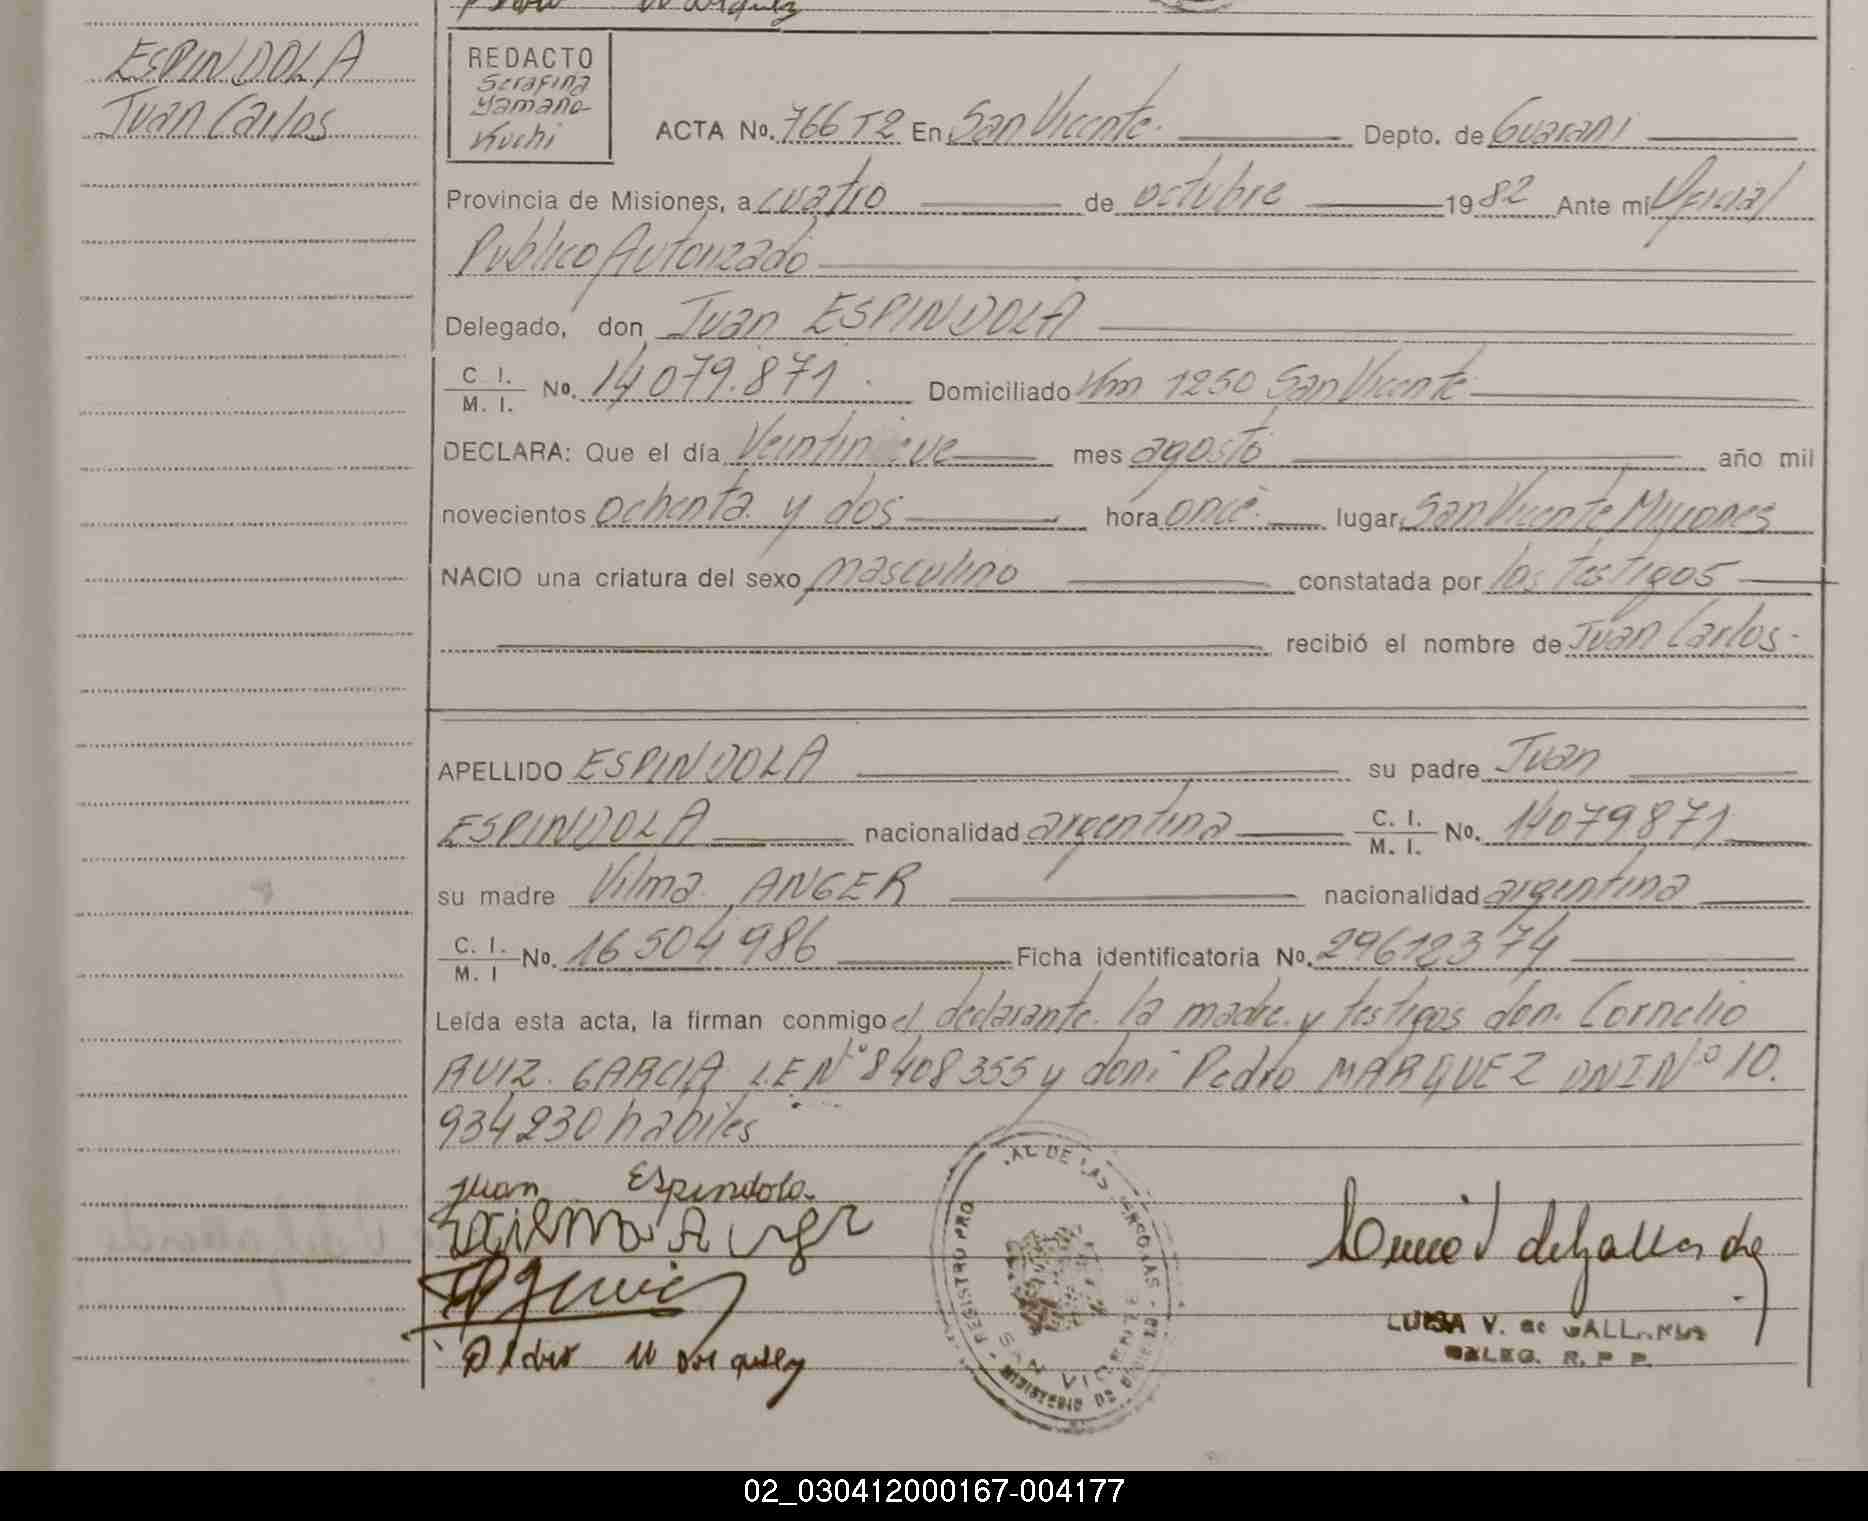 Pedro Marquez
ESPINDOLA
Juan Carlos
REDACTO
Serafina
Yamano
Kuchi
ACTA No. 766 T2 En San Vicente. Depto. de Guarani
Provincia de Misiones, a cuatro de octubre 1982 Ante mi Oficial
Publico Autorizado
Delegado, don Juan ESPINDOLA
C. I. / M. I. No. 14079.871. Domiciliado Km 1250 San Vicente
DECLARA: Que el día Veintinueve mes agosto año mil
novecientos ochenta y dos hora once lugar San Vicente Misiones
NACIO una criatura del sexo masculino constatada por los testigos
recibió el nombre de Juan Carlos-
APELLIDO ESPINDOLA su padre Juan
ESPINDOLA nacionalidad argentina C. I. / M. I. No. 14079871
su madre Vilma ANGER nacionalidad argentina
C. I. / M. I No. 16504986 Ficha identificatoria No. 29612374
Leída esta acta, la firman conmigo el declarante. la madre. y testigos don. Cornelio
RUIZ. GARCIA L.E Nº 8408355 y don: Pedro MARQUEZ DNI Nº 10.
934230 habiles
Juan Espindola
Pedro Marquez
REGISTRO PRO AL DE LAS PERSONAS
SAN VICENTE
LUISA V. de GALLARDO
DELEG. R. P. P.
02_030412000167-004177